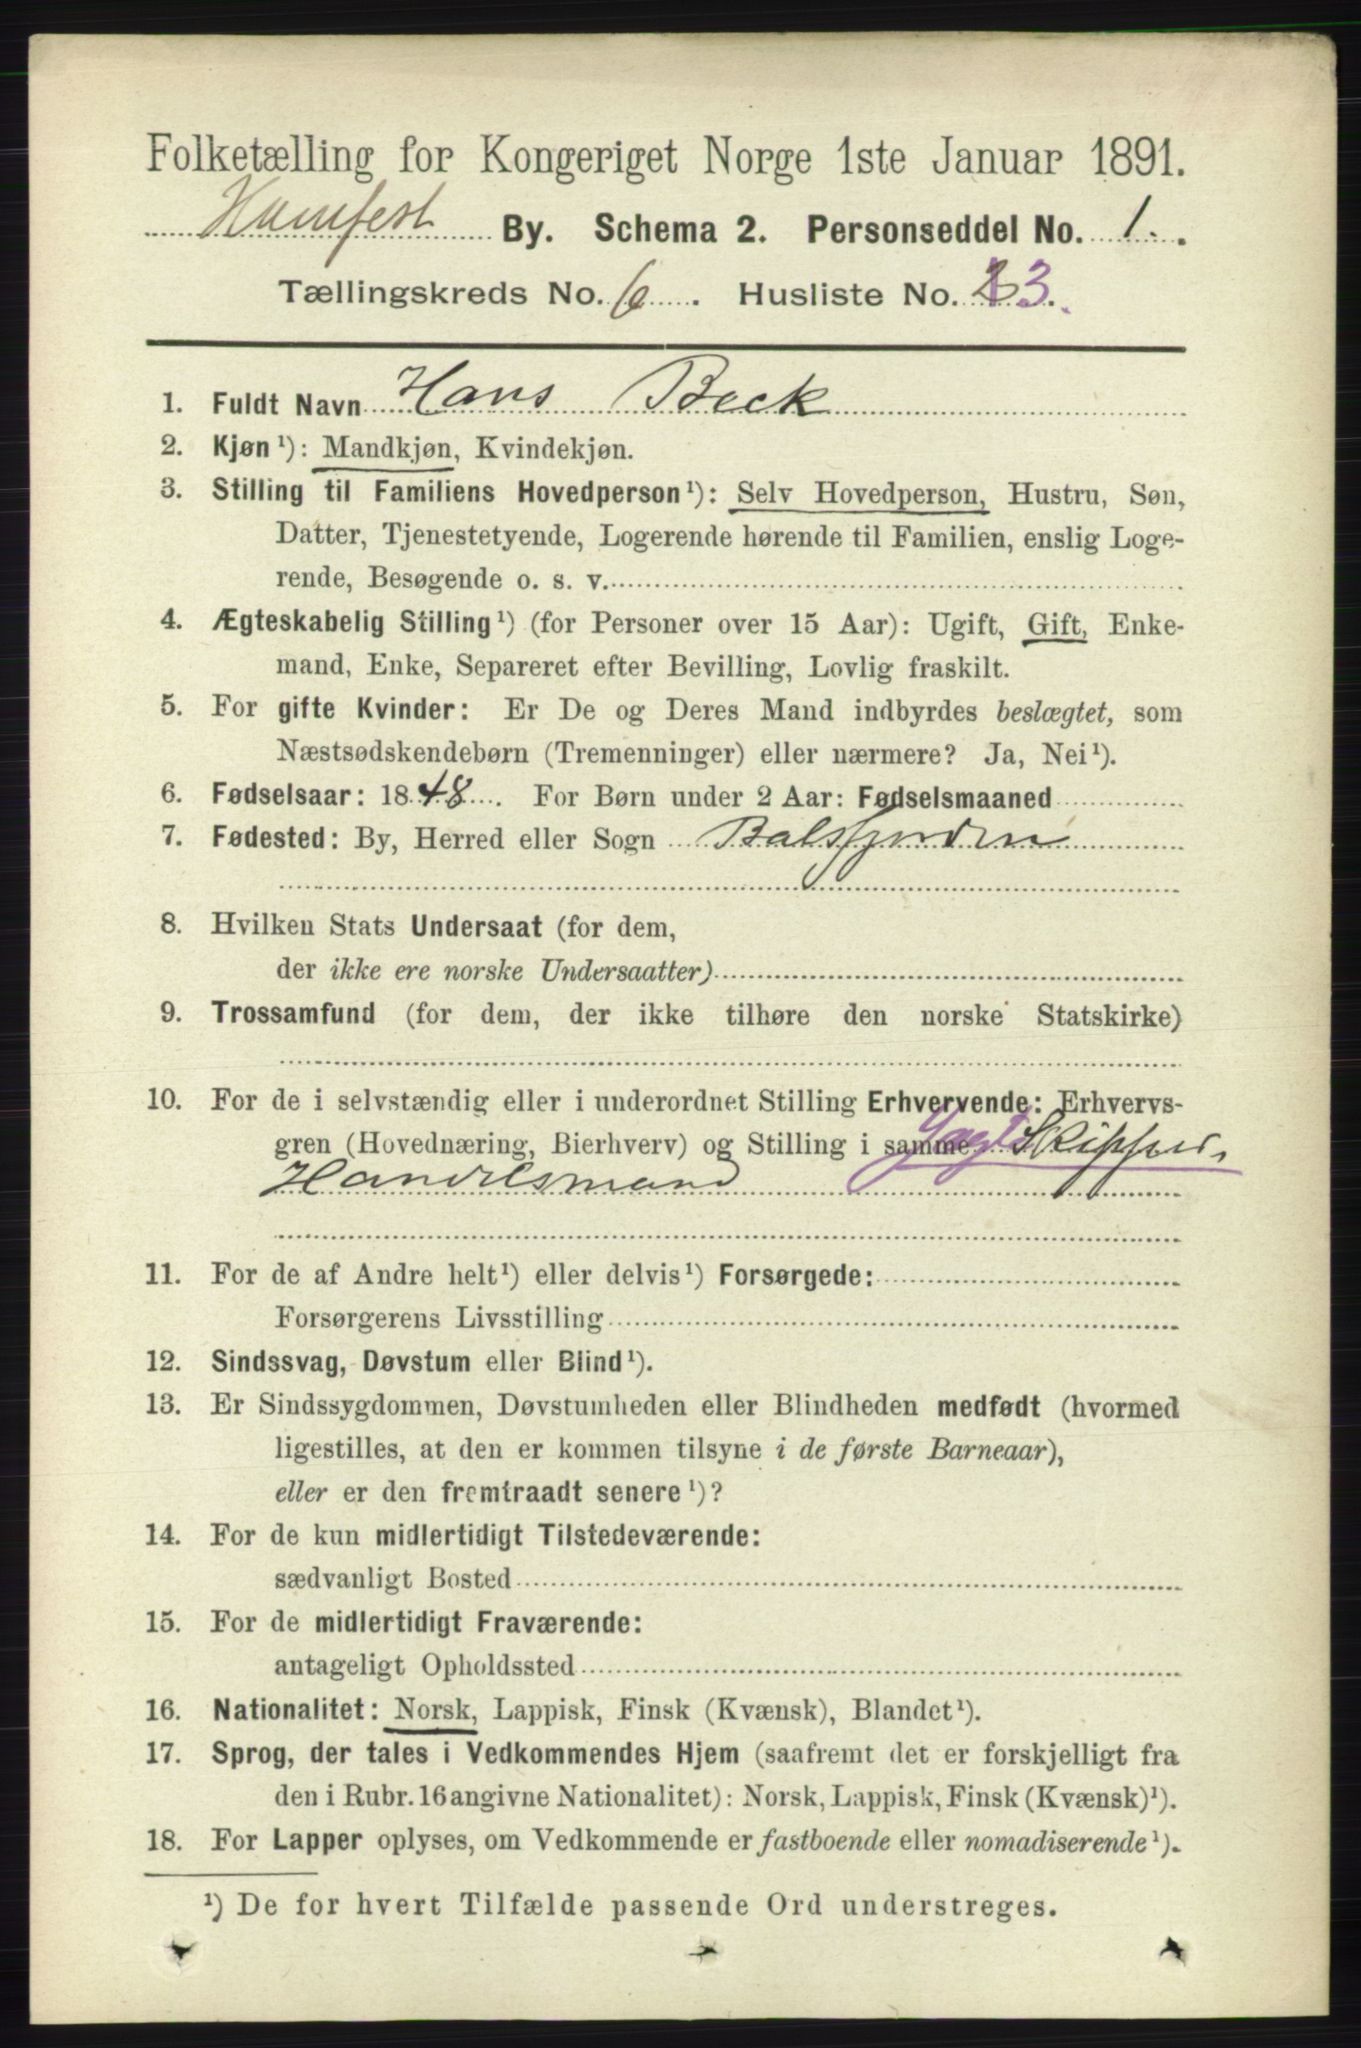 Folketælling for Kongeriget Norge 1ste Januar 1891.
Hamfest By. Schema 2. Personseddel No. 1.
Tællingskreds No. 6. Husliste No. 3.
1. Fuldt Navn Hans Beck
2. Kjøn¹): Mandkjøn, Kvindekjøn.
3. Stilling til Familiens Hovedperson¹): Selv Hovedperson, Hustru, Søn,
Datter, Tjenestetyende, Logerende hørende til Familien, enslig Loge-
rende, Besøgende o. s. v.
4. Ægteskabelig Stilling¹) (for Personer over 15 Aar): Ugift, Gift, Enke-
mand, Enke, Separeret efter Bevilling, Lovlig fraskilt.
5. For gifte Kvinder: Er De og Deres Mand indbyrdes beslægtet, som
Næstsødskendebørn (Tremenninger) eller nærmere? Ja, Nei¹).
6. Fødselsaar: 1848. For Børn under 2 Aar: Fødselsmaaned
7. Fødested: By, Herred eller Sogn Balsfjorden
8. Hvilken Stats Undersaat (for dem,
der ikke ere norske Undersaatter)
9. Trossamfund (for dem, der ikke tilhøre den norske Statskirke)
10. For de i selvstændig eller i underordnet Stilling Erhvervende: Erhvervs-
gren (Hovednæring, Bierhverv) og Stilling i samme Jagt Skipper,
Handelsmand
11. For de af Andre helt¹) eller delvis¹) Forsørgede:
Forsørgerens Livsstilling
12. Sindssvag, Døvstum eller Blind¹).
13. Er Sindssygdommen, Døvstumheden eller Blindheden medfødt (hvormed
ligestilles, at den er kommen tilsyne i de første Barneaar),
eller er den fremtraadt senere¹)?
14. For de kun midlertidigt Tilstedeværende:
sædvanligt Bosted
15. For de midlertidigt Fraværende:
antageligt Opholdssted
16. Nationalitet: Norsk, Lappisk, Finsk (Kvænsk), Blandet¹).
17. Sprog, der tales i Vedkommendes Hjem (saafremt det er forskjelligt fra
den i Rubr. 16 angivne Nationalitet): Norsk, Lappisk, Finsk (Kvænsk)¹).
18. For Lapper oplyses, om Vedkommende er fastboende eller nomadiserende¹).
¹) De for hvert Tilfælde passende Ord understreges.